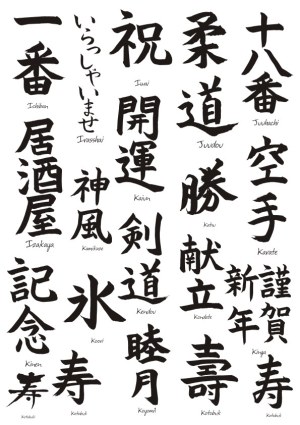 一番
Ichiban
いらっしゃいませ
Irasshai
祝
Iwai
柔道
Juudou
十八番
Juuhachi
居酒屋
Izakaya
神風
Kamikaze
開運
Kaiun
勝
Katsu
空手
Karate
記念
Kinen
氷
Koori
剣道
Kendou
献立
Kondate
謹賀
新年
Kinga
寿
Kotobuki
寿
Kotobuki
睦月
壽
Kotobuki
寿
Kotobuki